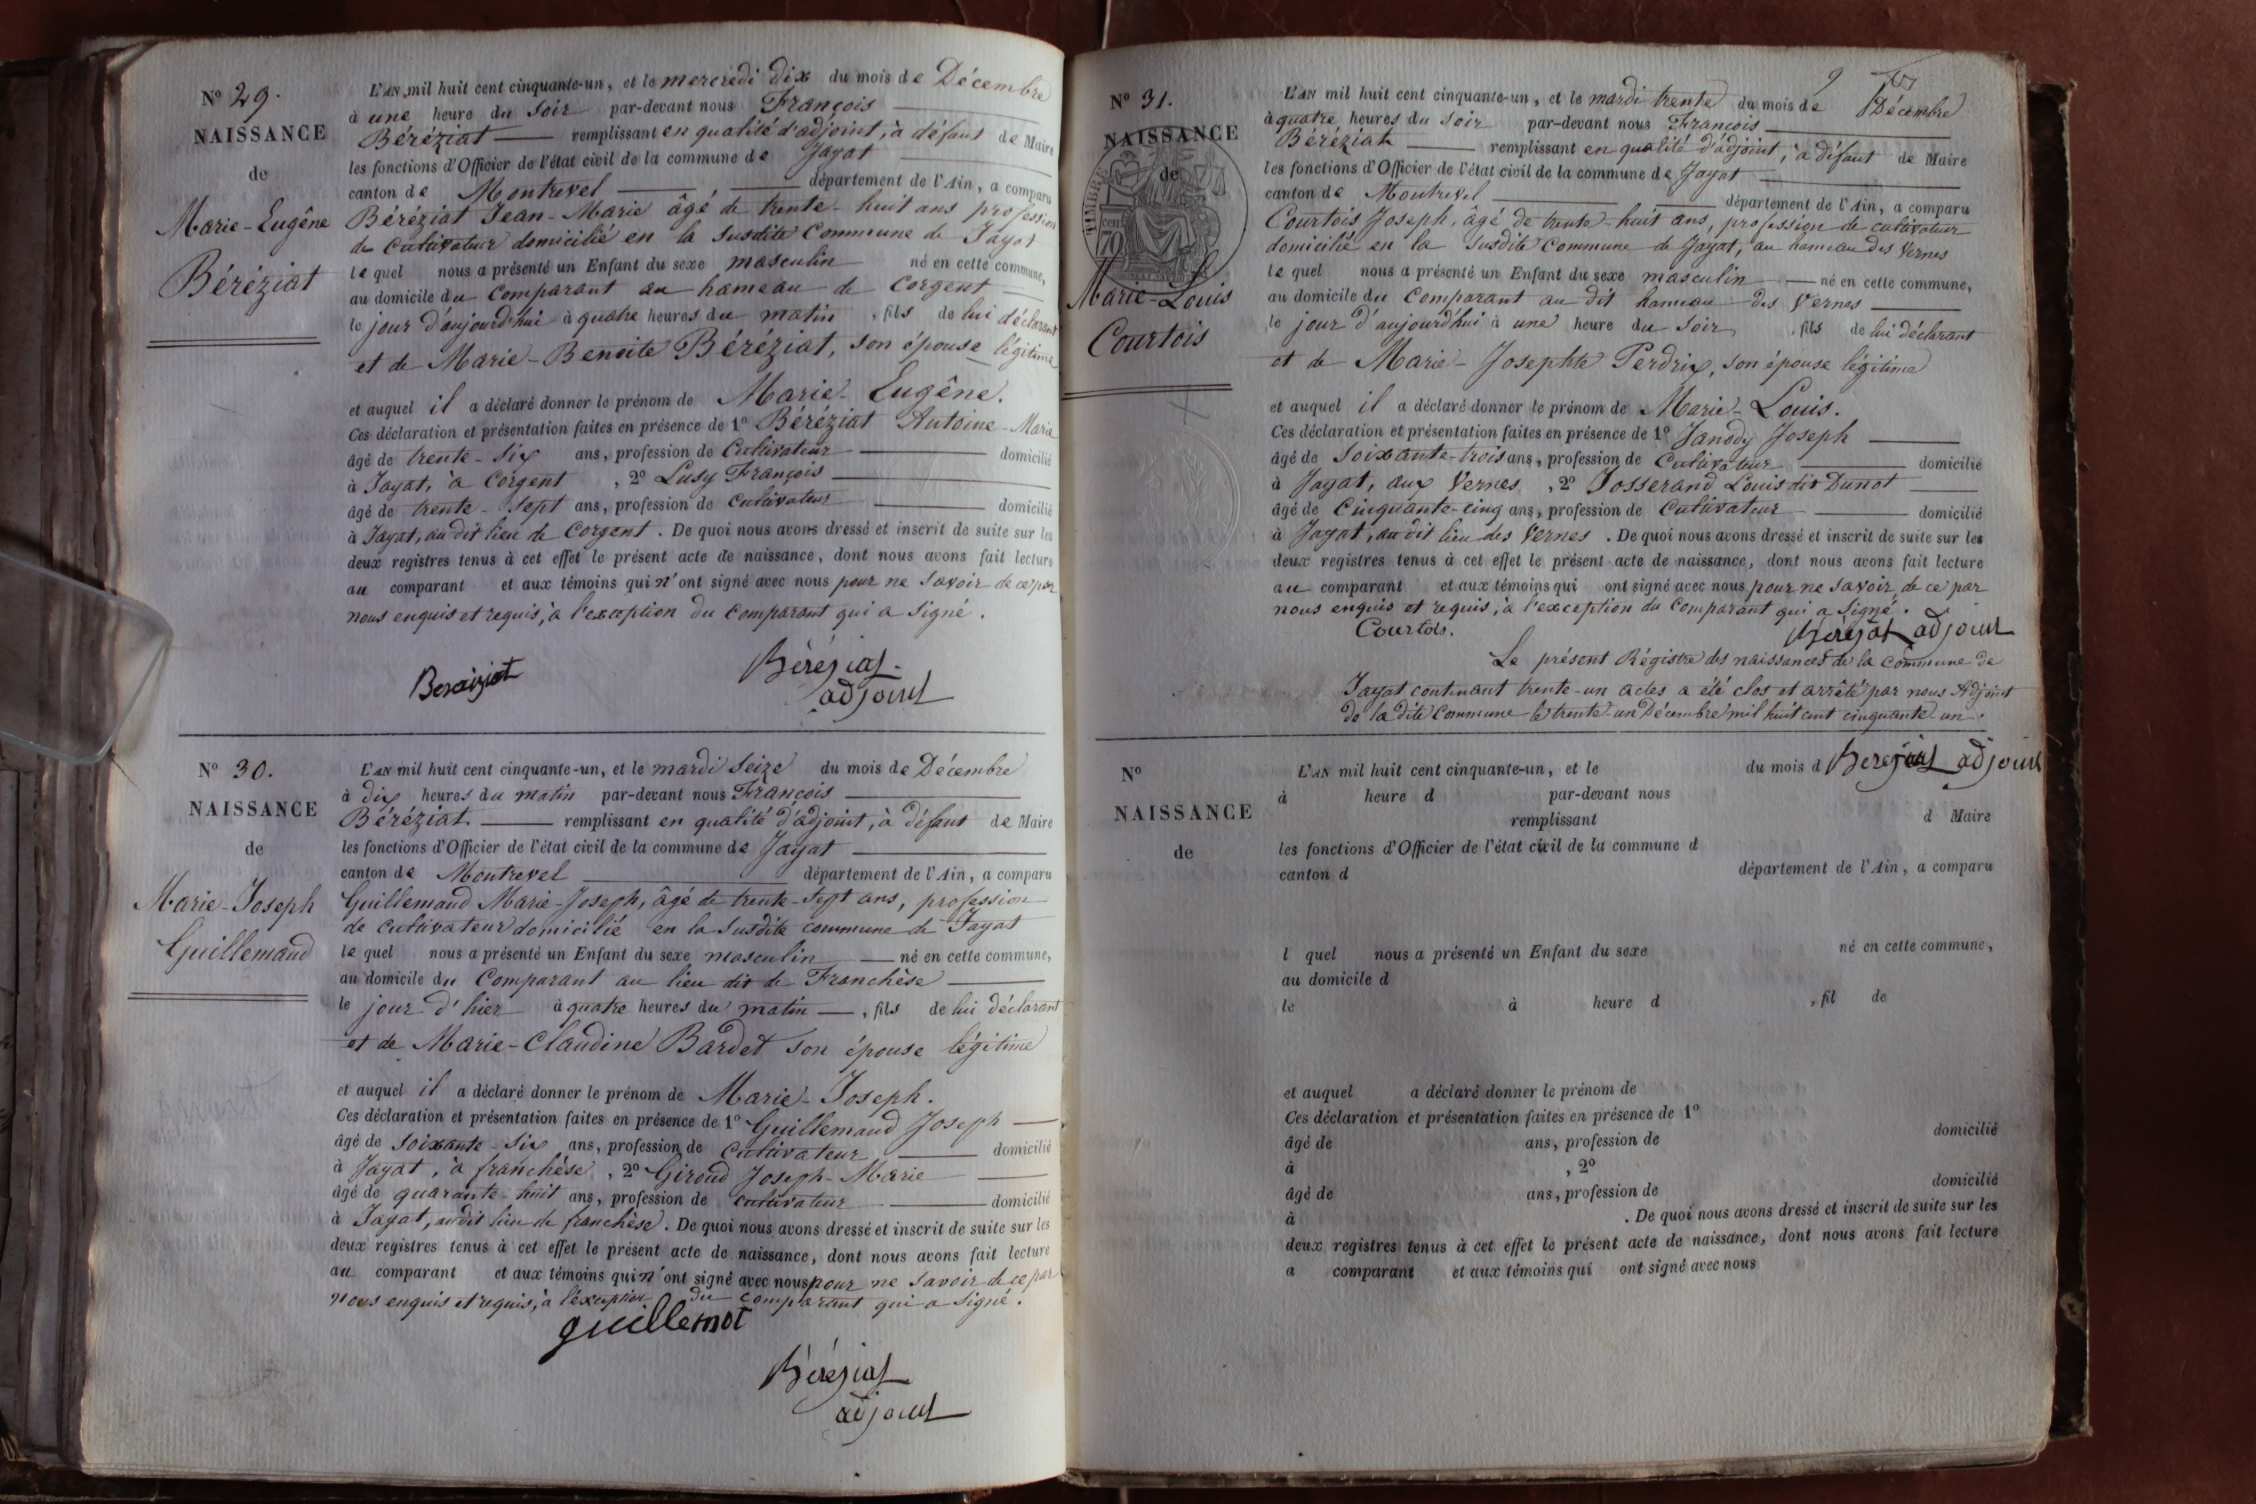 N° 29.
NAISSANCE
de
Marie-Eugêne
Béréziat
L'AN mil huit cent cinquante-un, et le mercredi dix du mois de Décembre
à une heure du soir par-devant nous François
Béréziat remplissant en qualité d'adjoint, à défaut de Maire
les fonctions d'Officier de l'état civil de la commune de Jayat
canton de Montrevel département de l'Ain, a comparu
Béréziat Jean-Marie âgé de trente-huit ans profession
de cultivateur domicilié en la susdite Commune de Jayat
le quel nous a présenté un Enfant du sexe masculin né en cette commune,
au domicile du Comparant au hameau de Corgent
le jour d'aujourd'hui à quatre heures du matin, fils de lui déclarant
et de Marie-Benoite Béréziat, son épouse légitime
et auquel il a déclaré donner le prénom de Marie-Eugêne.
Ces déclaration et présentation faites en présence de 1° Béréziat Antoine-Marie
âgé de trente-six ans, profession de Cultivateur domicilié
à Jayat, à Corgent, 2° Lusy François
âgé de trente-sept ans, profession de Cultivateur domicilié
à Jayat, au dit lieu de Corgent. De quoi nous avons dressé et inscrit de suite sur les
deux registres tenus à cet effet le présent acte de naissance, dont nous avons fait lecture
au comparant et aux témoins qui n'ont signé avec nous pour ne savoir de ce par
nous enquis et requis, à l'exception du Comparant qui a signé.
Beraiziat
Béréziat
adjoint
N° 30.
NAISSANCE
de
Marie-Joseph
Guillemaud
L'AN mil huit cent cinquante-un, et le mardi seize du mois de Décembre
à dix heures du matin par-devant nous François
Béréziat remplissant en qualité d'adjoint, à défaut de Maire
les fonctions d'Officier de l'état civil de la commune de Jayat
canton de Montrevel département de l'Ain, a comparu
Guillemaud Marie-Joseph, âgé de trente-sept ans, profession
de cultivateur domicilié en la susdite commune de Jayat
le quel nous a présenté un Enfant du sexe masculin né en cette commune,
au domicile du Comparant au lieu dit de Franchèse
le jour d'hier à quatre heures du matin, fils de lui déclarant
et de Marie-Claudine Bardet son épouse légitime
et auquel il a déclaré donner le prénom de Marie-Joseph.
Ces déclaration et présentation faites en présence de 1° Guillemaud Joseph
âgé de soixante-six ans, profession de Cultivateur domicilié
à Jayat, à franchèse, 2° Giroud Joseph-Marie
âgé de quarante-huit ans, profession de cultivateur domicilié
à Jayat, au dit lieu de franchèse. De quoi nous avons dressé et inscrit de suite sur les
deux registres tenus à cet effet le présent acte de naissance, dont nous avons fait lecture
au comparant et aux témoins qui n'ont signé avec nous pour ne savoir de ce par
nous enquis et requis, à l'exception du comparant qui a signé.
guillemot
Béréziat
adjoint
9
N° 31.
NAISSANCE
de
TIMBRE
70
Marie-Louis
Courtois
L'AN mil huit cent cinquante-un, et le mardi trente du mois de Décembre
à quatre heures du soir par-devant nous François
Béréziat remplissant en qualité d'adjoint, à défaut de Maire
les fonctions d'Officier de l'état civil de la commune de Jayat
canton de Montrevel département de l'Ain, a comparu
Courtois Joseph, âgé de trente-huit ans, profession de cultivateur
domicilié en la susdite commune de Jayat, au hameau des Vernes
le quel nous a présenté un Enfant du sexe masculin né en cette commune,
au domicile du Comparant au dit hameau des Vernes
le jour d'aujourd'hui à une heure du soir, fils de lui déclarant
et de Marie-Josephte Perdrix, son épouse légitime
et auquel il a déclaré donner le prénom de Marie-Louis.
Ces déclaration et présentation faites en présence de 1° Janody Joseph
âgé de soixante-trois ans, profession de Cultivateur domicilié
à Jayat, aux Vernes, 2° Josserand Louis dit Dunot
âgé de Cinquante-cinq ans, profession de Cultivateur domicilié
à Jayat, au dit lieu des Vernes. De quoi nous avons dressé et inscrit de suite sur les
deux registres tenus à cet effet le présent acte de naissance, dont nous avons fait lecture
au comparant et aux témoins qui ont signé avec nous pour ne savoir de ce par
nous enquis et requis, à l'exception du Comparant qui a signé.
Courtois. Béréziat adjoint
Le présent Régistre des naissances de la Commune de
Jayat contenant trente-un actes a été clos et arrêté par nous Adjoint
de la dite Commune le trente-un Décembre mil huit cent cinquante un.
Béréziat adjoint
N°
NAISSANCE
de
L'AN mil huit cent cinquante-un, et le du mois d
à heure d par-devant nous
remplissant d Maire
les fonctions d'Officier de l'état civil de la commune d
canton d département de l'Ain, a comparu
l quel nous a présenté un Enfant du sexe né en cette commune,
au domicile d
le à heure d , fil de
et auquel a déclaré donner le prénom de
Ces déclaration et présentation faites en présence de 1°
âgé de ans, profession de domicilié
à , 2°
âgé de ans, profession de domicilié
à . De quoi nous avons dressé et inscrit de suite sur les
deux registres tenus à cet effet le présent acte de naissance, dont nous avons fait lecture
a comparant et aux témoins qui ont signé avec nous